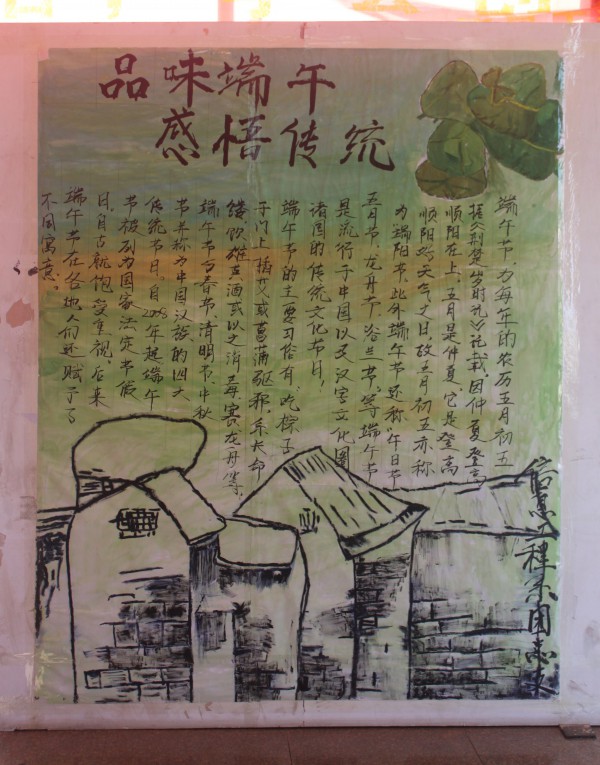 品味端午
感悟传统
端午节,为每年的农历五月初五
据《荆楚岁时记》记载,因仲夏登高
顺阳在上,五月是仲夏,它是登高
顺阳好天气之日,故五月初五亦称
为端阳节,此外端午节还称"午日节
五月节、龙舟节、浴兰节"等,端午节
是流行于中国以及汉字文化圈
诸国的传统文化节日,
端午节的主要习俗有,吃粽子
子门上插艾或菖蒲驱邪,系长命
缕,饮雄黄酒或以之消毒,赛龙舟等,
端午节与春节、清明节、中秋
节并称为中国汉族的四大
传统节日,自2008年起端午
节被列为国家法定节假
日,自古就饱受重视,后来
端午节在各地人们还赋予了
不同寓意。
信息工程系团总支